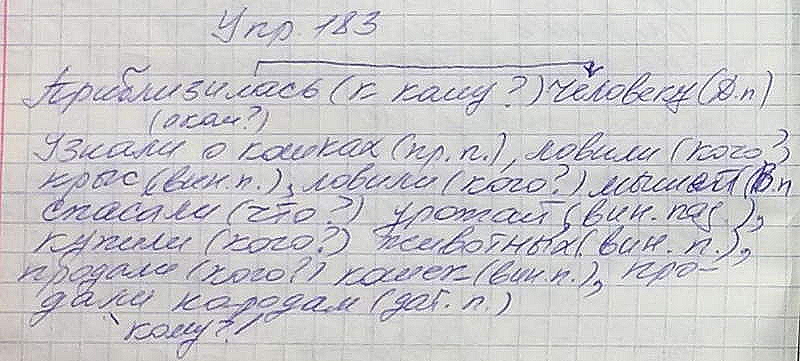 Упр. 183
Приблизилась (к кому?) человеку (Д.п)
(о ком?)
Узнали о кошках (пр.п.), ловили (кого?)
крыс (вин.п.), ловили (кого?) мышей (В.п
спасали (что?) урожай (вин. пад.),
купили (кого?) животных (вин. п.),
продали (кого?) кошек (вин.п.), про-
дали народам (дат. п.)
кому?